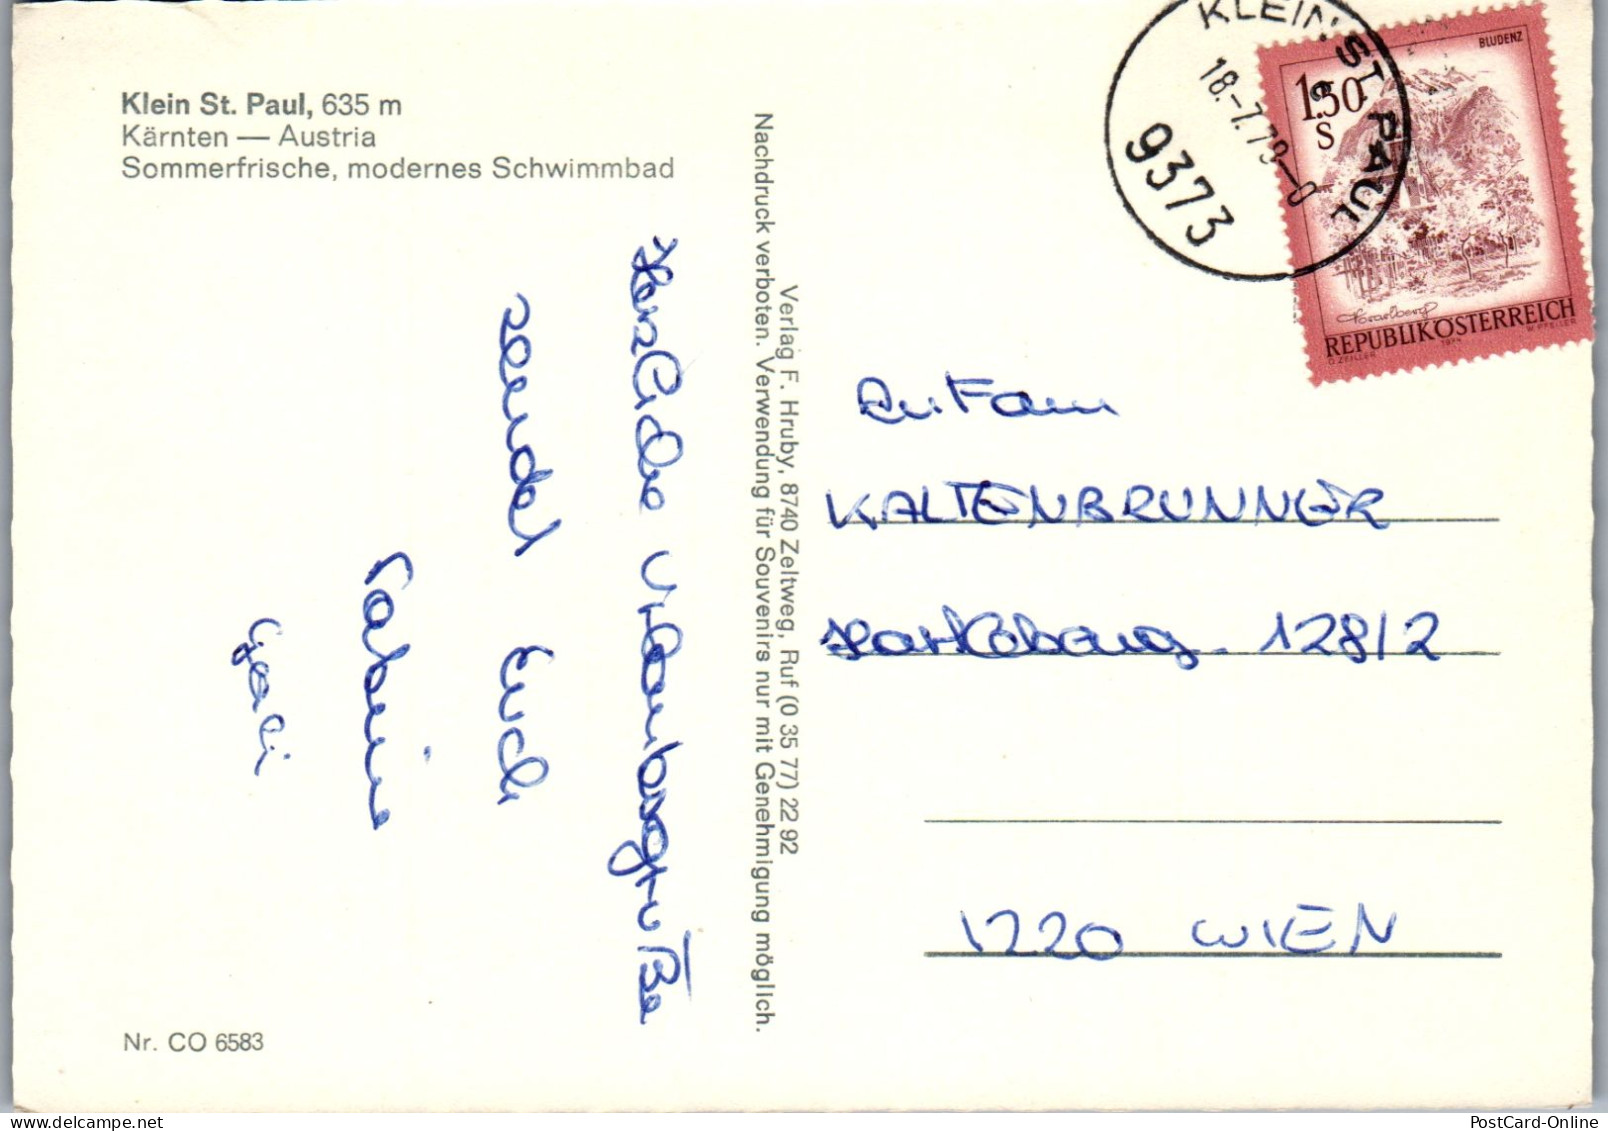 Klein St. Paul, 635 m
Kärnten — Austria
Sommerfrische, modernes Schwimmbad
Herzliche Urlaubsgrüße
sendet Euch
Sabine
Nr. CO 6583
Verlag F. Hruby, 8740 Zeltweg, Ruf (0 35 77) 22 92
Nachdruck verboten. Verwendung für Souvenirs nur mit Genehmigung möglich.
KLEIN ST. PAUL
18.-7.79-0
9373
BLUDENZ
1.50
S
Vorarlberg
REPUBLIK ÖSTERREICH
O. ZEILLER 1974 W. PFEILER
An Fam
KALTENBRUNNER
128/2
1220 WIEN
PostCard-Online